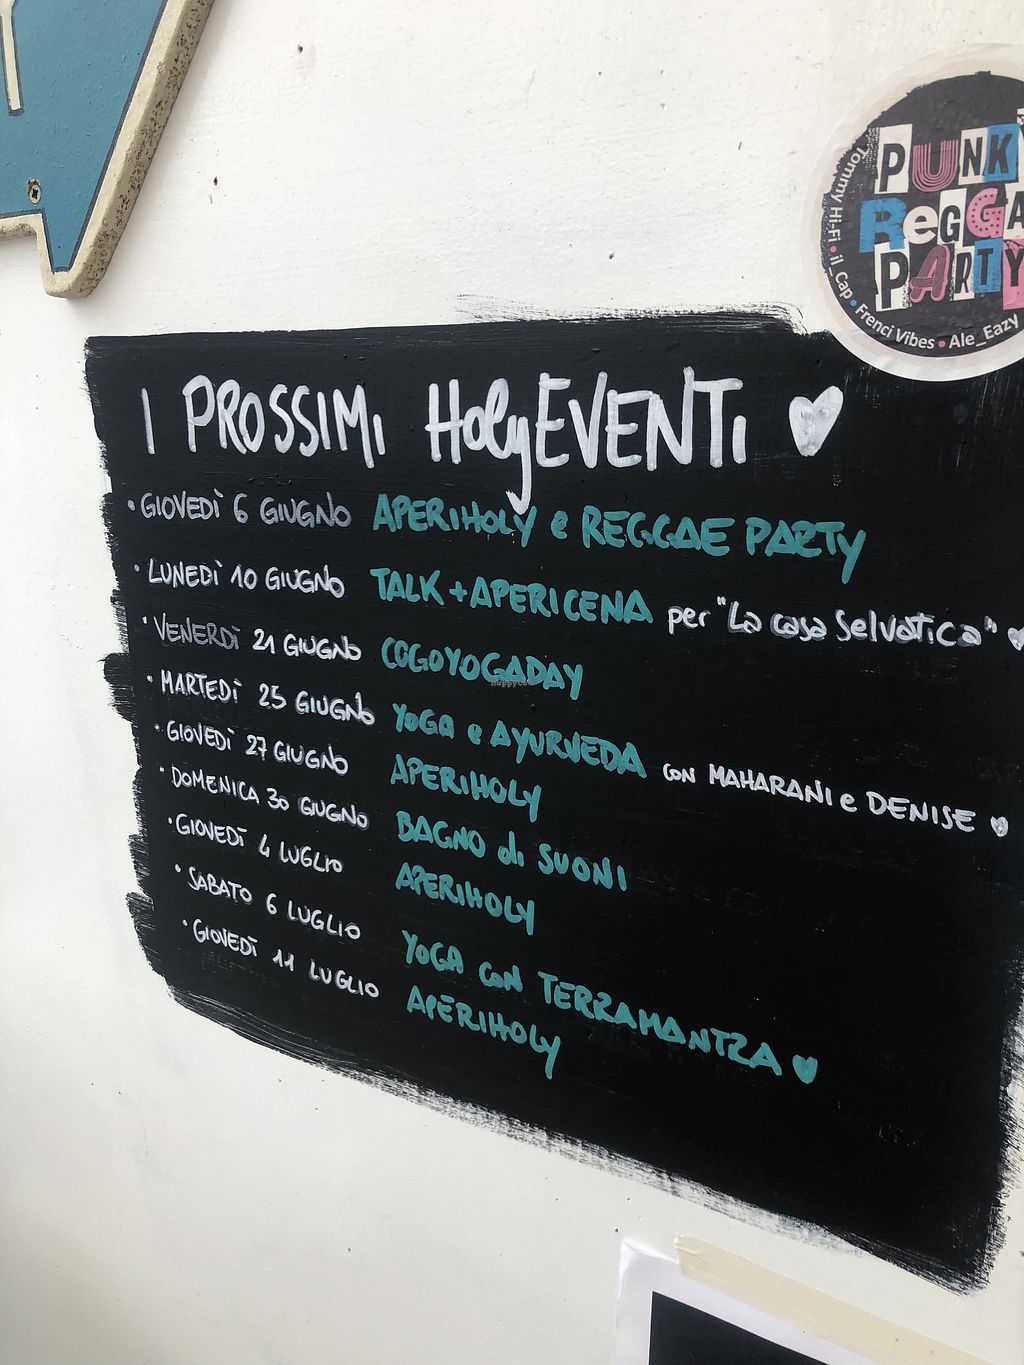 PUNKY
REGGA
PARTY
Tommy Hi-Fi • il_Cap • Frenci Vibes • Ale_Eazy
I PROSSIMI HolyEVENTI ♥
• GIOVEDÌ 6 GIUGNO APERIHOLY e REGGAE PARTY
• LUNEDÌ 10 GIUGNO TALK + APERICENA per "La casa selvatica" ♥
• VENERDÌ 21 GIUGNO COGOYOGADAY
• MARTEDÌ 25 GIUGNO YOGA e AYURVEDA con MAHARANI e DENISE ♥
• GIOVEDÌ 27 GIUGNO APERIHOLY
• DOMENICA 30 GIUGNO BAGNO di SUONI
• GIOVEDÌ 4 LUGLIO APERIHOLY
• SABATO 6 LUGLIO YOGA con TERRAMANTRA ♥
• GIOVEDÌ 11 LUGLIO APERIHOLY